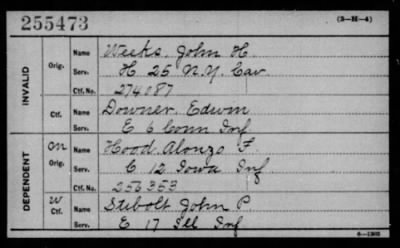 255473 (3-M-4)
INVALID
Orig. Name Weeks, John H.
Serv. H 25 N.Y. Cav.
Ctf. No. 274087
Ctf. Name Downer, Edwin
Serv. E 6 Conn Inf
DEPENDENT
On Orig. Name Hood Alonzo F.
Serv. C 12 Iowa Inf
Ctf. No. 256353
W Ctf. Name Stibolt John P
Serv. E 17 Ill Inf